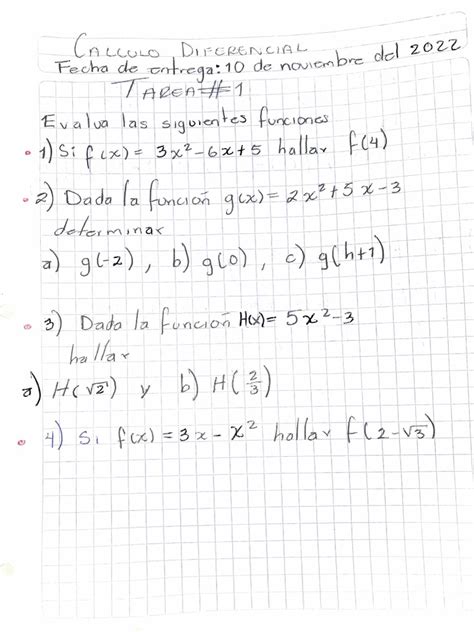 CALCULO DIFERENCIAL
Fecha de entrega: 10 de noviembre del 2022
TAREA #1
Evalua las siguientes funciones
• 1) Si f(x) = 3x² - 6x + 5 hallar f(4)
• 2) Dada la función g(x) = 2x² + 5x - 3
determinar
a) g(-2) , b) g(0) , c) g(h+1)
• 3) Dada la función H(x) = 5x² - 3
hallar
a) H(√2) y b) H(2/3)
• 4) Si f(x) = 3x - x² hallar f(2-√3)